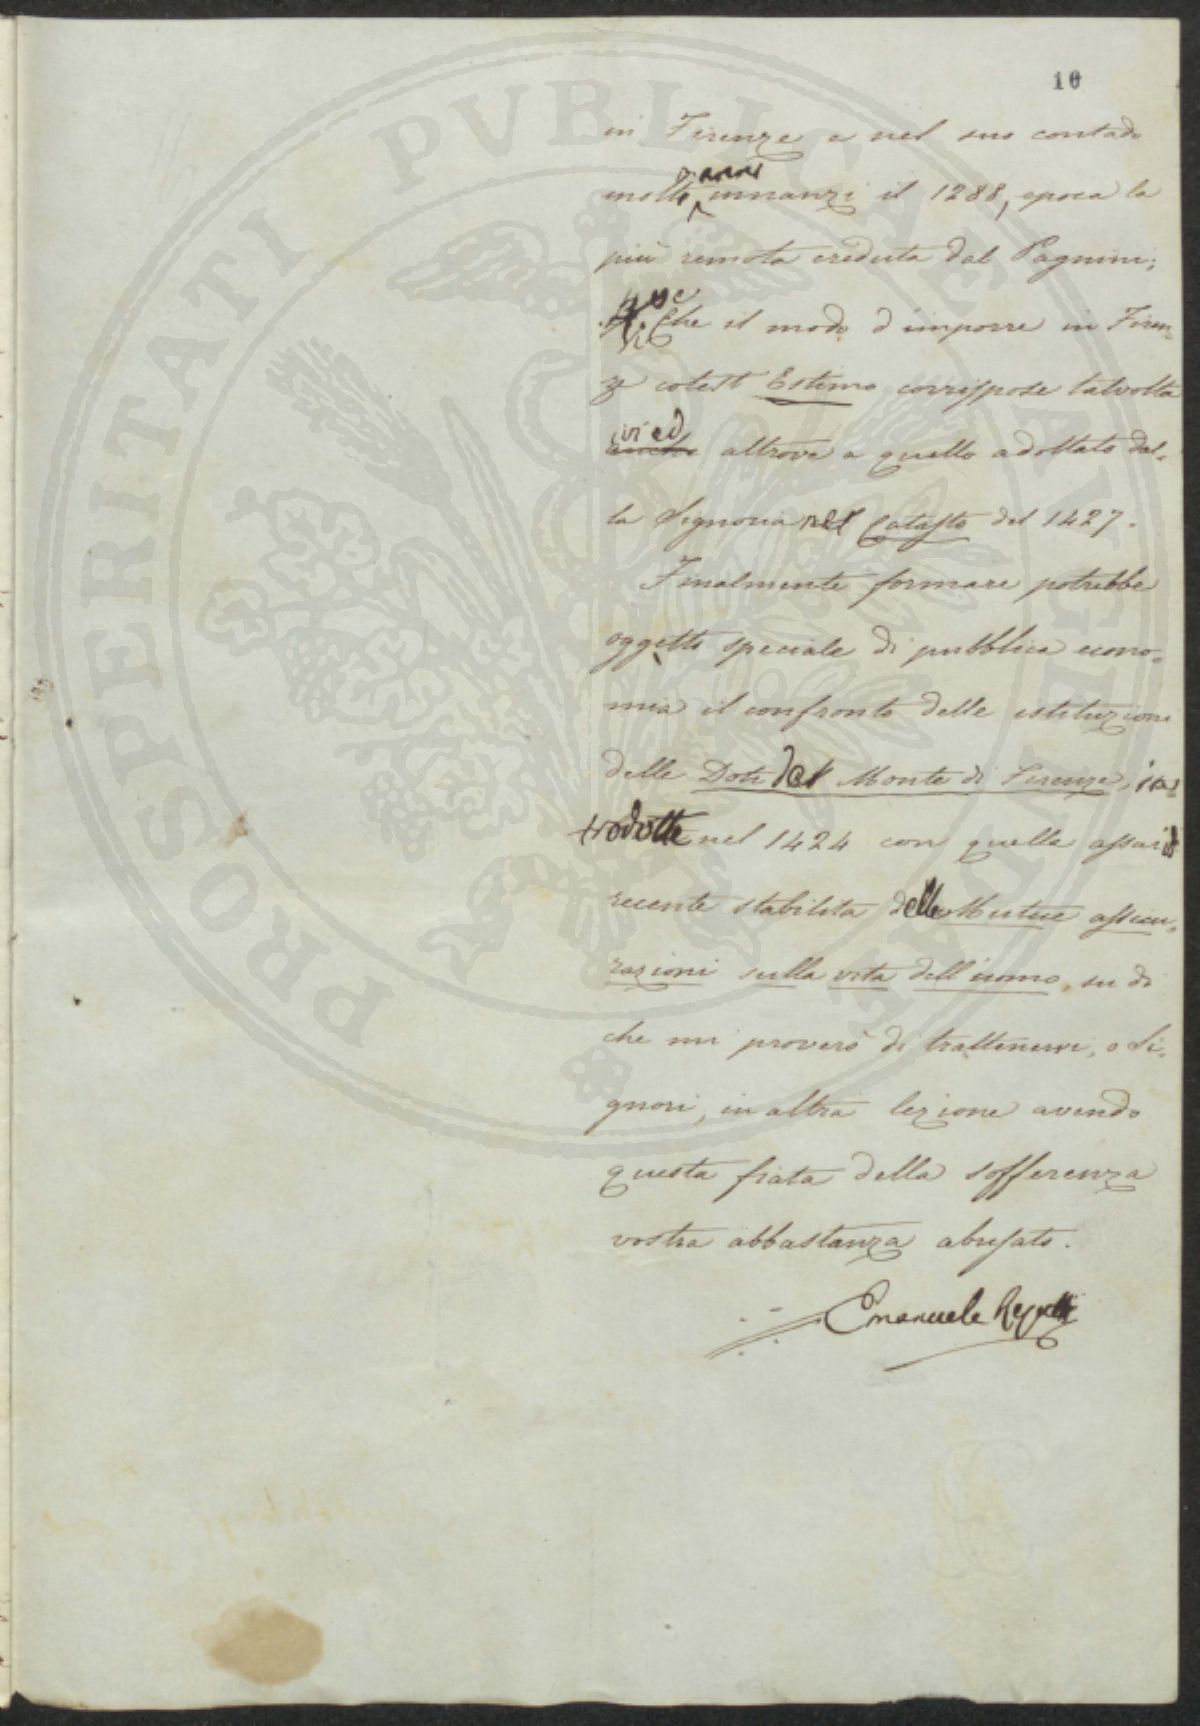 10
in Firenze e nel suo contado
molti anni innanzi il 1288, epoca la
più remota creduta dal Pagnini;
4. che il modo d'imporre in Firen-
ze cotest' Estimo corrispose talvolta
ivi ed altrove a quello adottato dal-
la Signoria nel Catasto del 1427.
Finalmente formare potrebbe
oggetto speciale di pubblica econo-
mia il confronto delle istituzioni
delle Doti del Monte di Firenze, in-
trodotte nel 1424 con quelle assai
recente stabilita delle Mutue assicu-
razioni sulla vita dell'uomo, su di
che mi proverò di trattenervi, o Si-
gnori, in altra lezione avendo
questa fiata della sofferenza
vostra abbastanza abusato.
Emanuele Repetti
PROSPERITATI PVBLICAE AVGENDAE